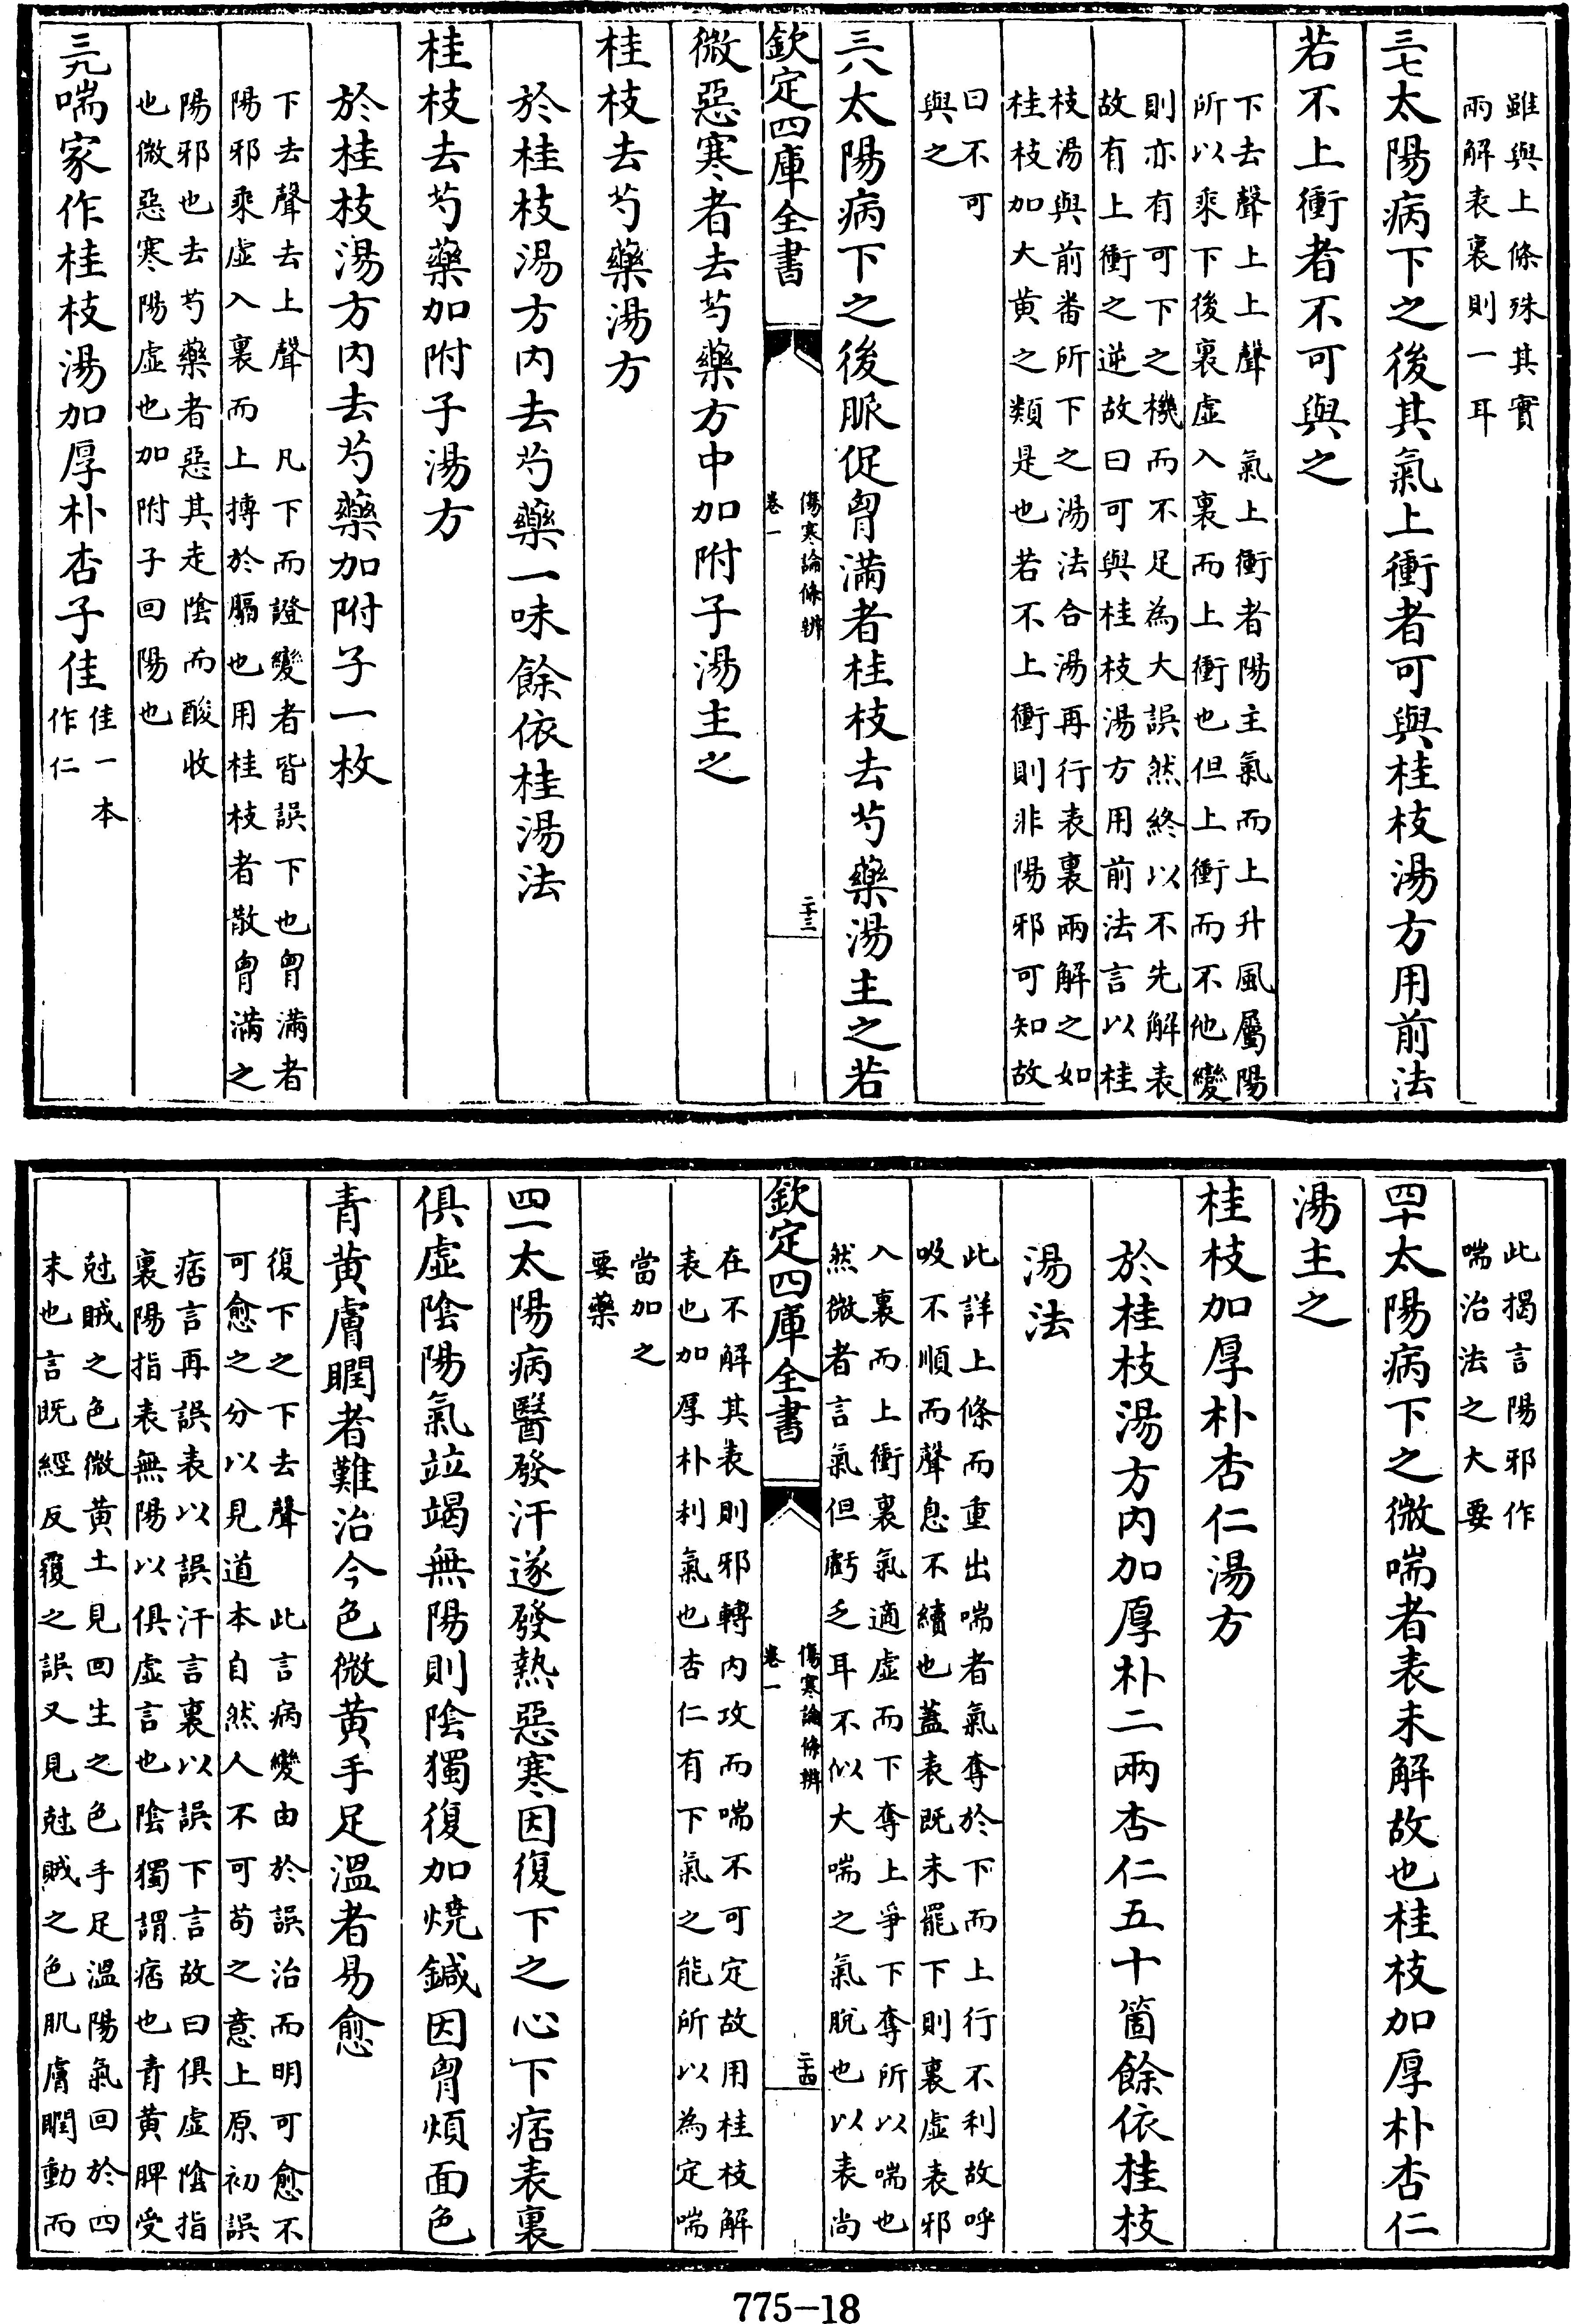 雖與上條殊其實
兩解表裏則一耳
三七太陽病下之後其氣上衝者可與桂枝湯方用前法
若不上衝者不可與之
下去聲上上聲　氣上衝者陽主氣而上升風屬陽
所以乘下後裏虛入裏而上衝也但上衝而不他變
則亦有可下之機而不足為大誤然終以不先解表
故有上衝之逆故曰可與桂枝湯方用前法言以桂
枝湯與前番所下之湯法合湯再行表裏兩解之如
桂枝加大黄之類是也若不上衝則非陽邪可知故
曰不可
與之
三八太陽病下之後脈促胷滿者桂枝去芍藥湯主之若
欽定四庫全書
傷寒論條辨
卷一
二十三
微惡寒者去芍藥方中加附子湯主之
桂枝去芍藥湯方
於桂枝湯方内去芍藥一味餘依桂湯法
桂枝去芍藥加附子湯方
於桂枝湯方内去芍藥加附子一枚
下去聲去上聲　凡下而證變者皆誤下也胷滿者
陽邪乘虛入裏而上搏於膈也用桂枝者散胷滿之
陽邪也去芍藥者惡其走陰而酸收
也微惡寒陽虛也加附子回陽也
三九喘家作桂枝湯加厚朴杏子佳
佳一本
作仁
此揭言陽邪作
喘治法之大要
四十太陽病下之微喘者表未解故也桂枝加厚朴杏仁
湯主之
桂枝加厚朴杏仁湯方
於桂枝湯方内加厚朴二兩杏仁五十箇餘依桂枝
湯法
此詳上條而重出喘者氣奪於下而上行不利故呼
吸不順而聲息不續也蓋表既未罷下則裏虛表邪
入裏而上衝裏氣適虛而下奪上爭下奪所以喘也
然微者言氣但虧乏耳不似大喘之氣脫也以表尚
欽定四庫全書
傷寒論條辨
卷一
二十四
在不解其表則邪轉内攻而喘不可定故用桂枝解
表也加厚朴利氣也杏仁有下氣之能所以為定喘
當加之
要藥
四一太陽病醫發汗遂發熱惡寒因復下之心下痞表裏
俱虛陰陽氣竝竭無陽則陰獨復加燒鍼因胷煩面色
青黄膚瞤者難治今色微黄手足溫者易愈
復下之下去聲　此言病變由於誤治而明可愈不
可愈之分以見道本自然人不可苟之意上原初誤
痞言再誤表以誤汗言裏以誤下言故曰俱虛陰指
裏陽指表無陽以俱虛言也陰獨謂痞也青黄脾受
尅賊之色微黄土見回生之色手足溫陽氣回於四
末也言既經反覆之誤又見尅賊之色肌膚瞤動而
775-18